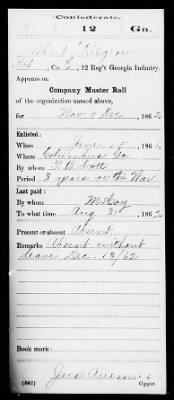 Confederate.
12 Ga.
Co. , 12 Reg't Georgia Infantry.
Appears on
Company Muster Roll
of the organization named above,
for Nov & Dec, 1862
Enlisted:
When June 15, 186
Where Columbus Ga
By whom
Period 3 years or the War
Last paid:
By whom McCoy
To what time Aug 31, 1862
Present or absent Absent
Remarks Absent without
leave Dec. 13/62
Book mark:
(642) Copyist.